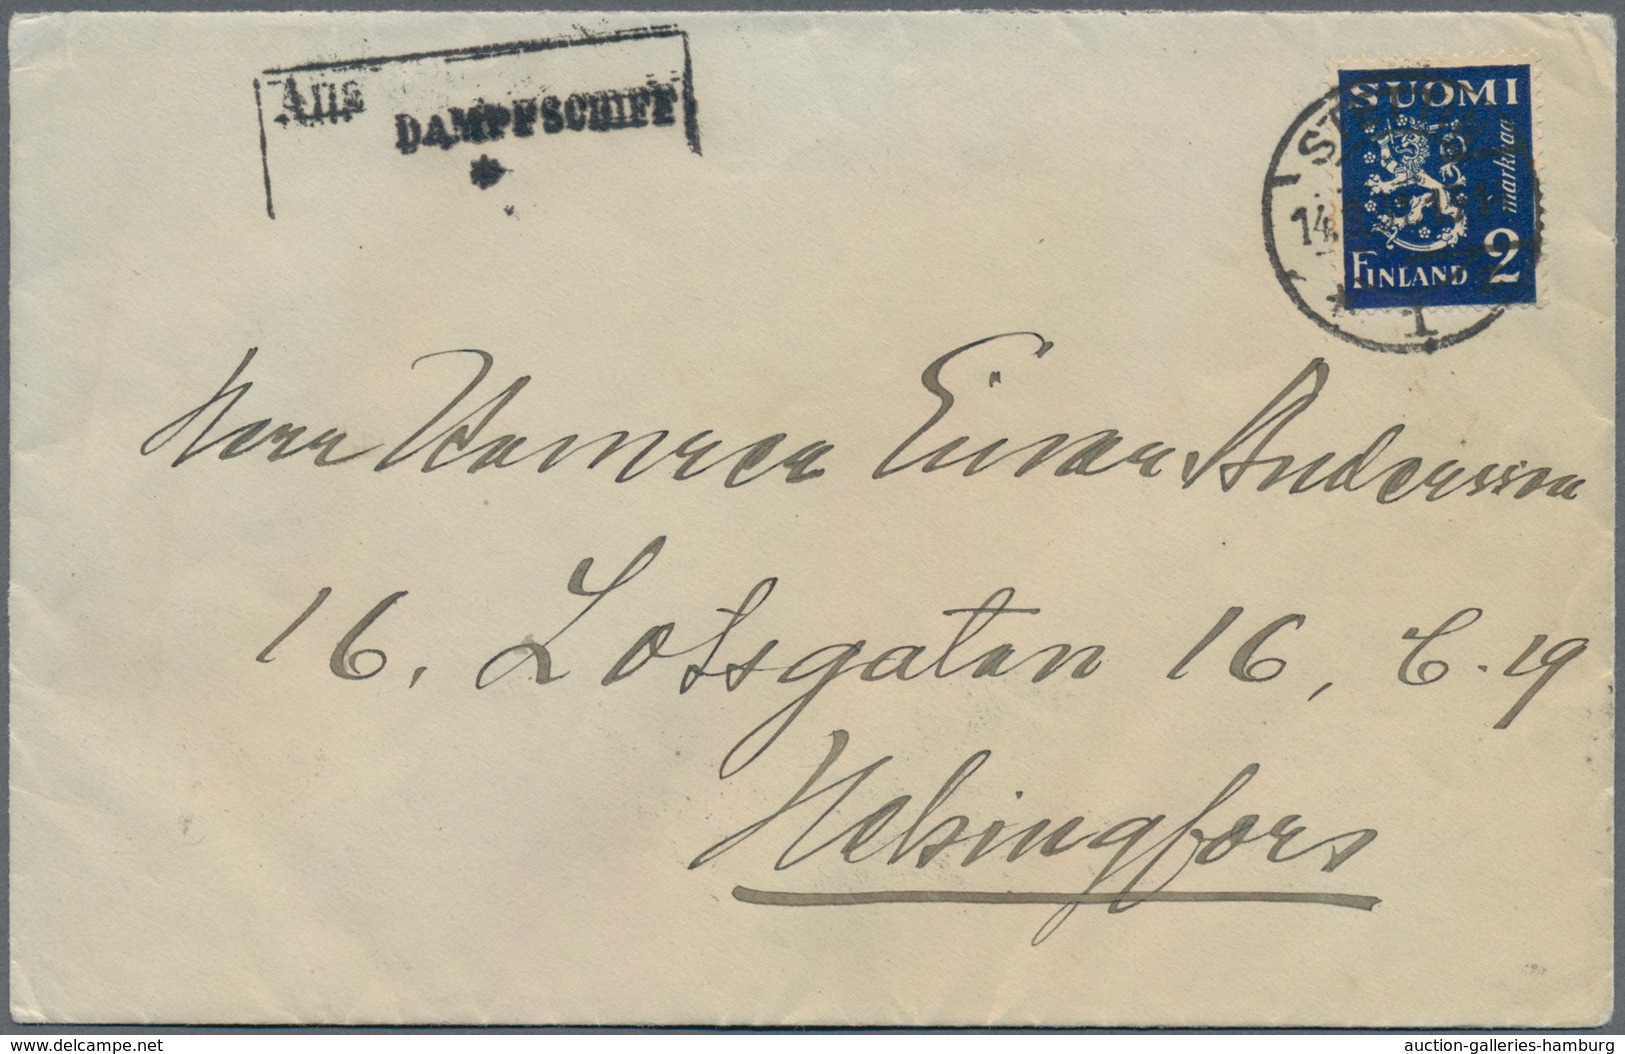 Aus
DAMPFSCHIFF
SUOMI
markkaa
FINLAND 2
1
Herr Kamrer Einar Andersson
16. Lotsgatan 16, C. 19
Helsingfors
www.delcampe.net
auction-galleries-hamburg